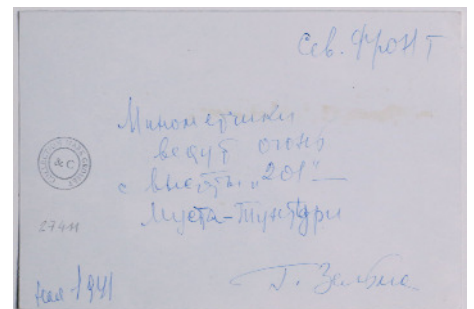 Сев. Фронт
Минометчики
ведут огонь
с высоты „201“ —
Муста-Тунтури
& C
1941
Г. Зельма